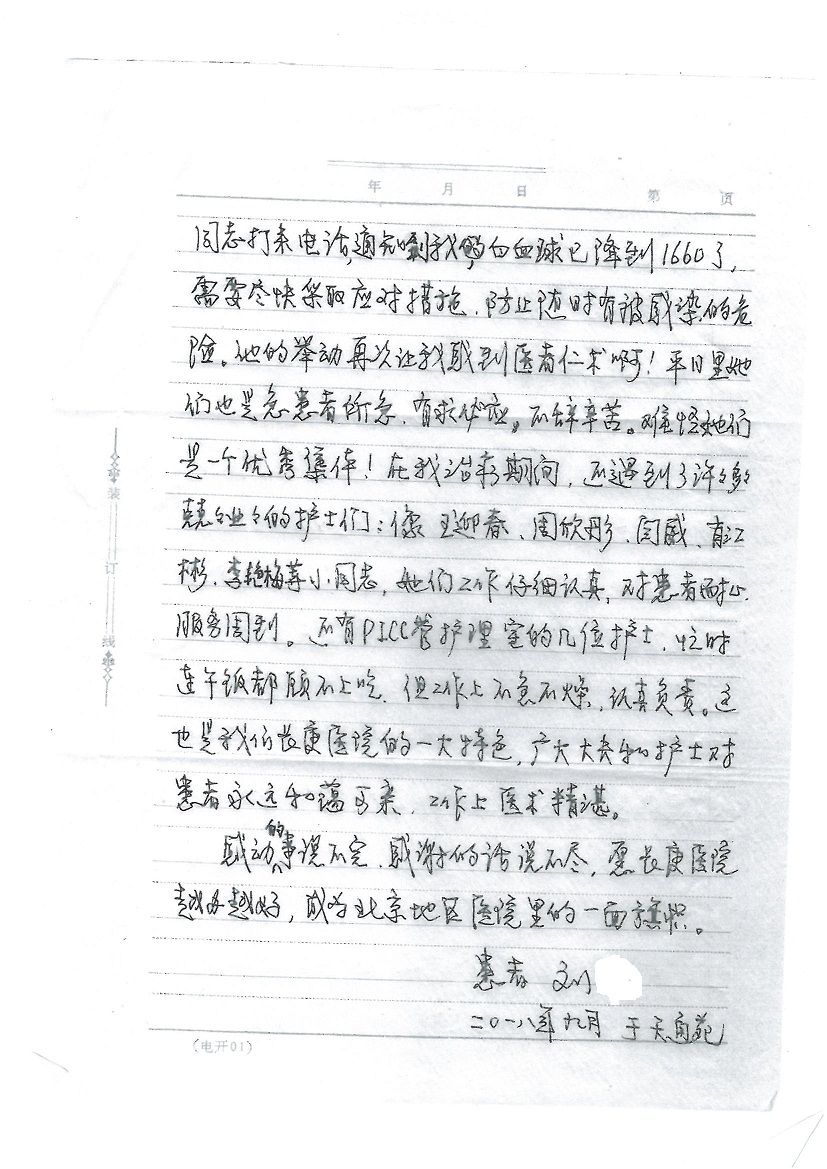 年 月 日 第 页
同志打来电话,通知到我的白血球已降到1660了,
需要尽快采取应对措施,防止随时有被感染的危
险。他的举动再次让我感到医者仁术啊!平日里她
们也是急患者所急,有求必应。不辞辛苦。难怪她们
是一个优秀集体!在我治疗期间,还遇到了许々多々
兢々业々的护士们:像王迎春、周欣彤、闫威、
彬、李艳梅等小同志,她们工作仔细认真,对患者耐心
服务周到。还有PICC管护理室的几位护士,忙时
连午饭都顾不上吃,但工作上不急不燥,认真负责。这
也是我们长庚医院的一大特色,广大大夫和护士对
患者永远和蔼可亲,工作上医术精湛。
感动的事说不完,感谢的话说不尽,愿长庚医院
越办越好,成为北京地区医院里的一面旗帜。
患者 刘
二〇一八年九月 于天通苑
(电开01)
装
订
线